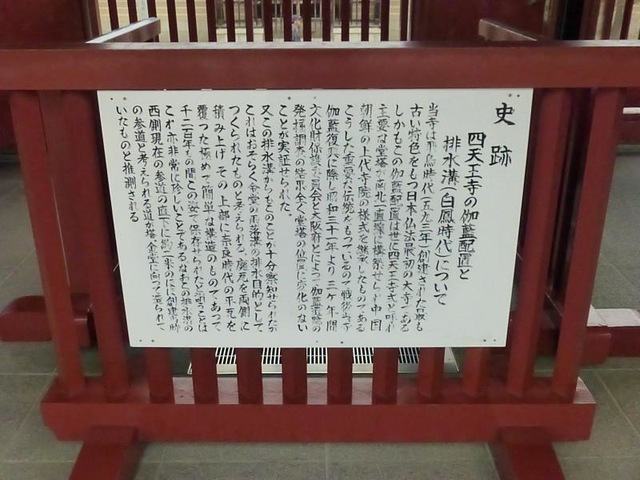 史跡
四天王寺の伽藍配置と
排水溝(白鳳時代)について
当寺は飛鳥時代(五九三年)創建された最も
古い特色をもつ日本仏法最初の大寺である
しかもこの伽藍配置は世に四天王寺式と呼れ
主要な堂塔が南北一直線に構築せられ中国
朝鮮の上代寺院の様式を継承したものである
こうした重要な伝統をもっているので戦後当寺
伽藍復興に際し昭和三十一年より三ヶ年間
文化財保護委員会と大阪府とによって伽藍
発掘調査の結果全く堂塔の位置に変化のない
ことが実証せられた
又この排水溝からもそのことが十分察知せられたが
これはおそらく金堂の雨落溝の排水目的として
つくられたものと考えられる 底瓦を両側に
積み上げ その上部に奈良時代の平瓦を
覆った極めて簡単な構造のものであって
千二百年もの間この姿で保存せられたと云うことは
これ亦非常に珍しいことである なおこの排水溝の
西側現在の参道の直下に創建時の
の参道と考えられる道が塔金堂に向って造られて
いたものと推測される